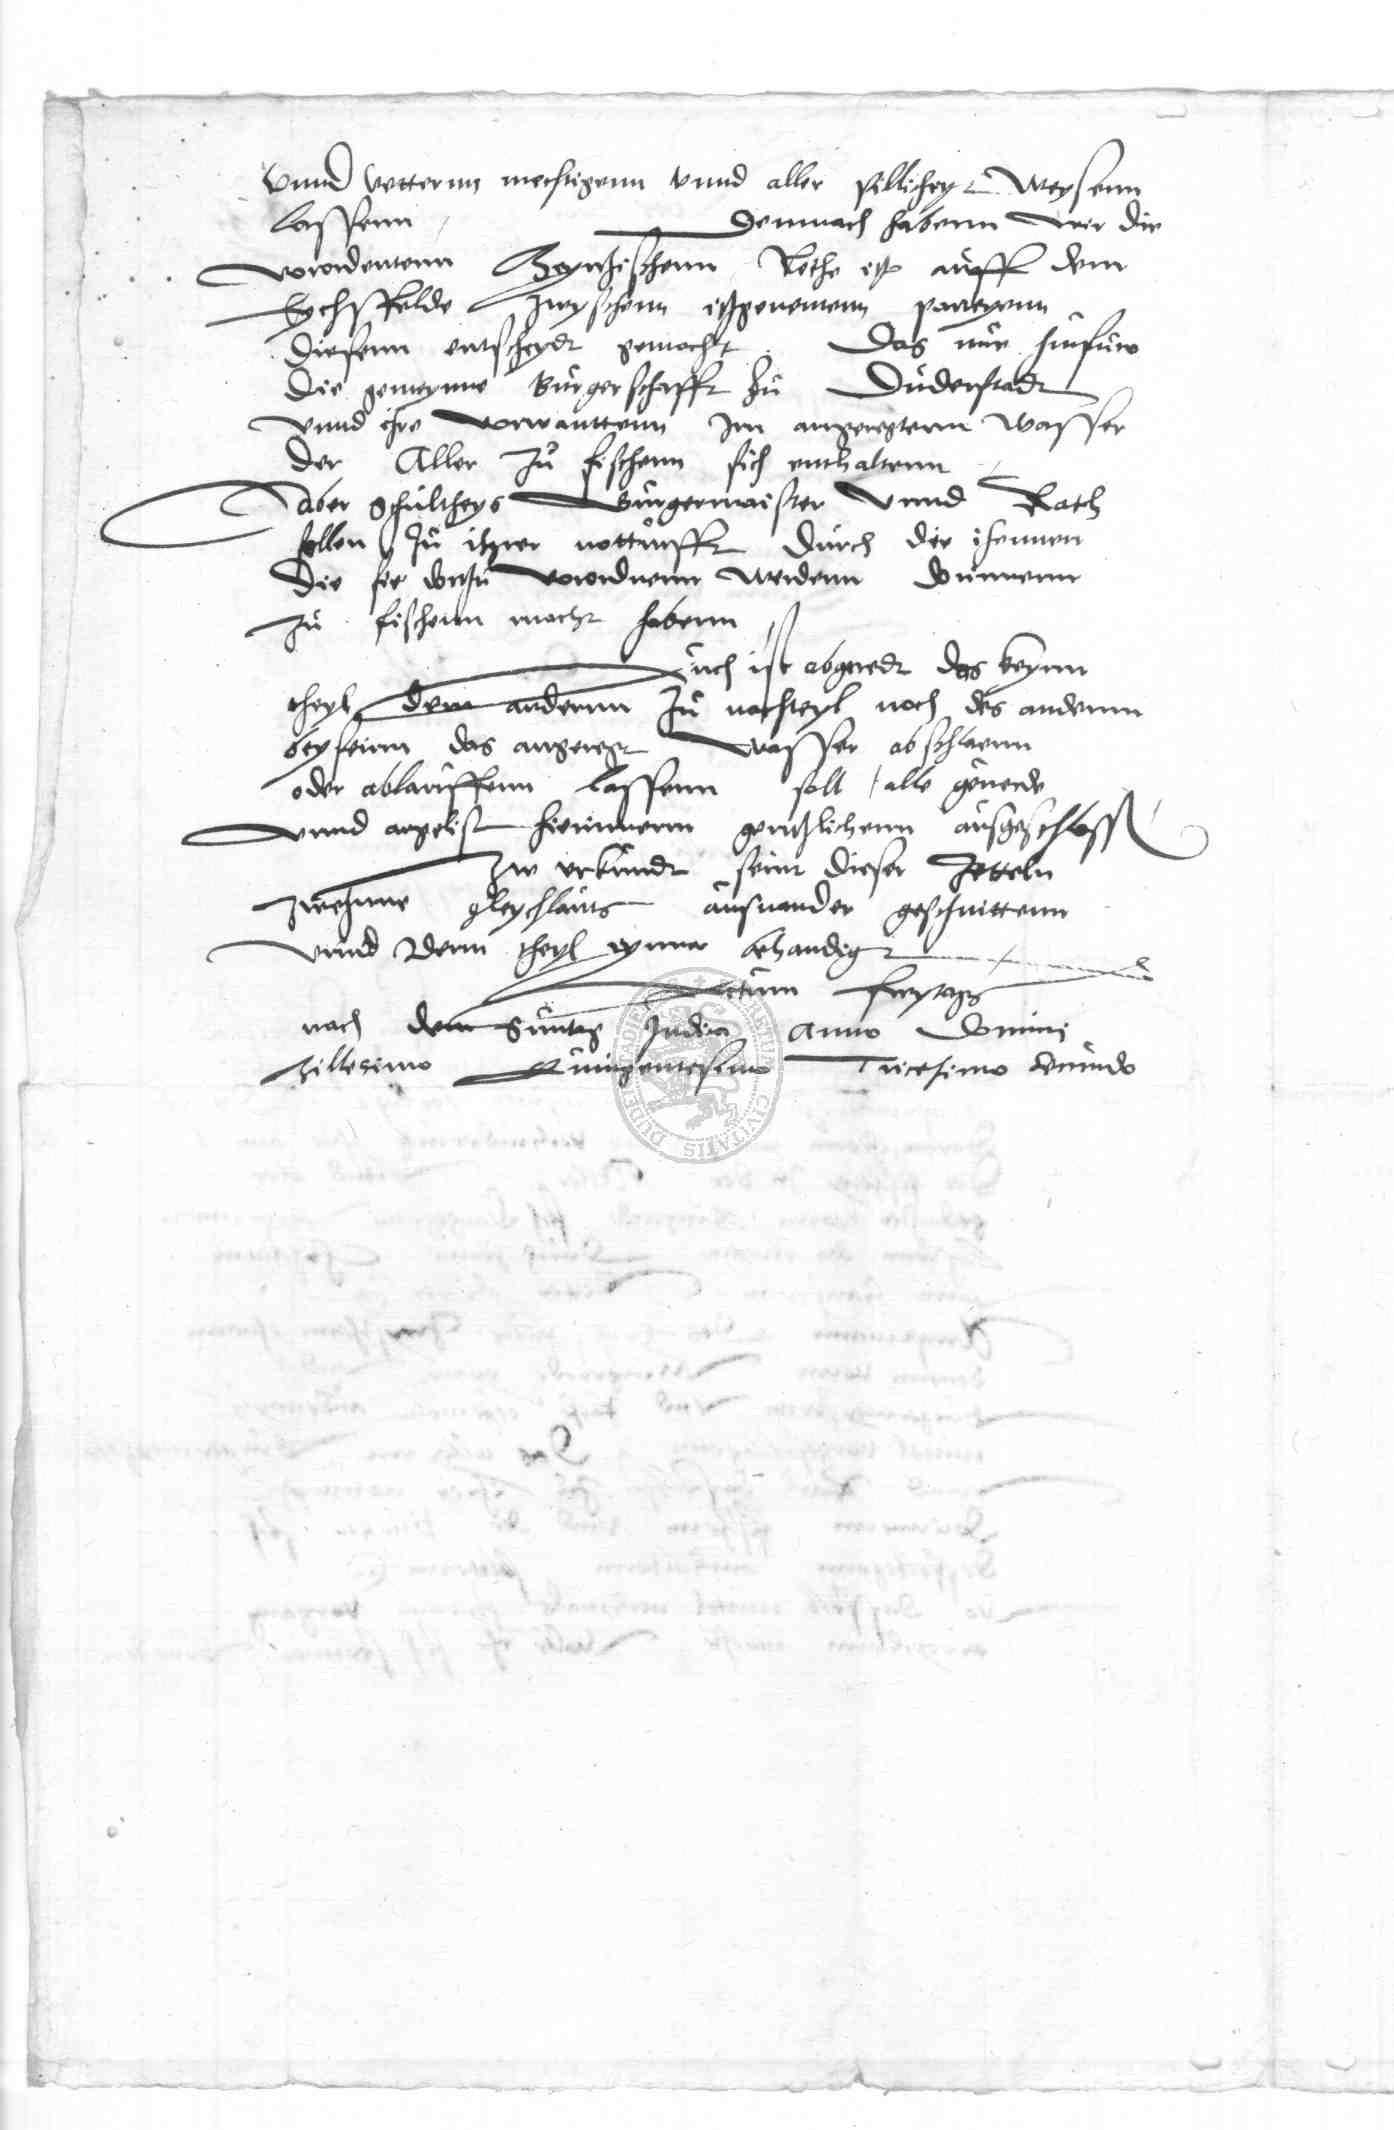 Unnd vetternn mechtigenn unnd aller pillicheyt weysenn
lassenn / Demnach habenn wir die
verordentenn Meyntzischenn Rethe itzo auff dem
Eychsfelde zwyschenn itzgenentenn partheyenn
diesenn entscheydt gemacht Das nue hinfuro
die gemeynne Burgerschafft zu Duderstadt
unnd ire verwanttenn Im angeregtenn wasser
der Aller zu fischenn sich enthaltenn
aber Schultheys Burgermaister unnd Rath
sollen zu irer notturfft durch die ihennen
die sie dorzu verordnenn werdenn dorinnenn
zu fischenn macht habenn
Auch ist abgeredt das keynn
theyl dem andernn zu nachteyl noch des andernn
beyseinn das angeregt wasser abschlaenn
oder ablauffenn lassenn soll / alle geuerde
unnd argelist hierinnenn gentzlichenn ausgeschloss
Zw urkundt seint dieser Zetteln
zwehnne gleychlauts ausnander geschnittenn
unnd idem theyl eynne behandigt
Actum Freytags
nach dem Suntag Judica Anno Domini
Millesimo Quingentesimo Tricesimo secundo
DUDER CIVITATIS